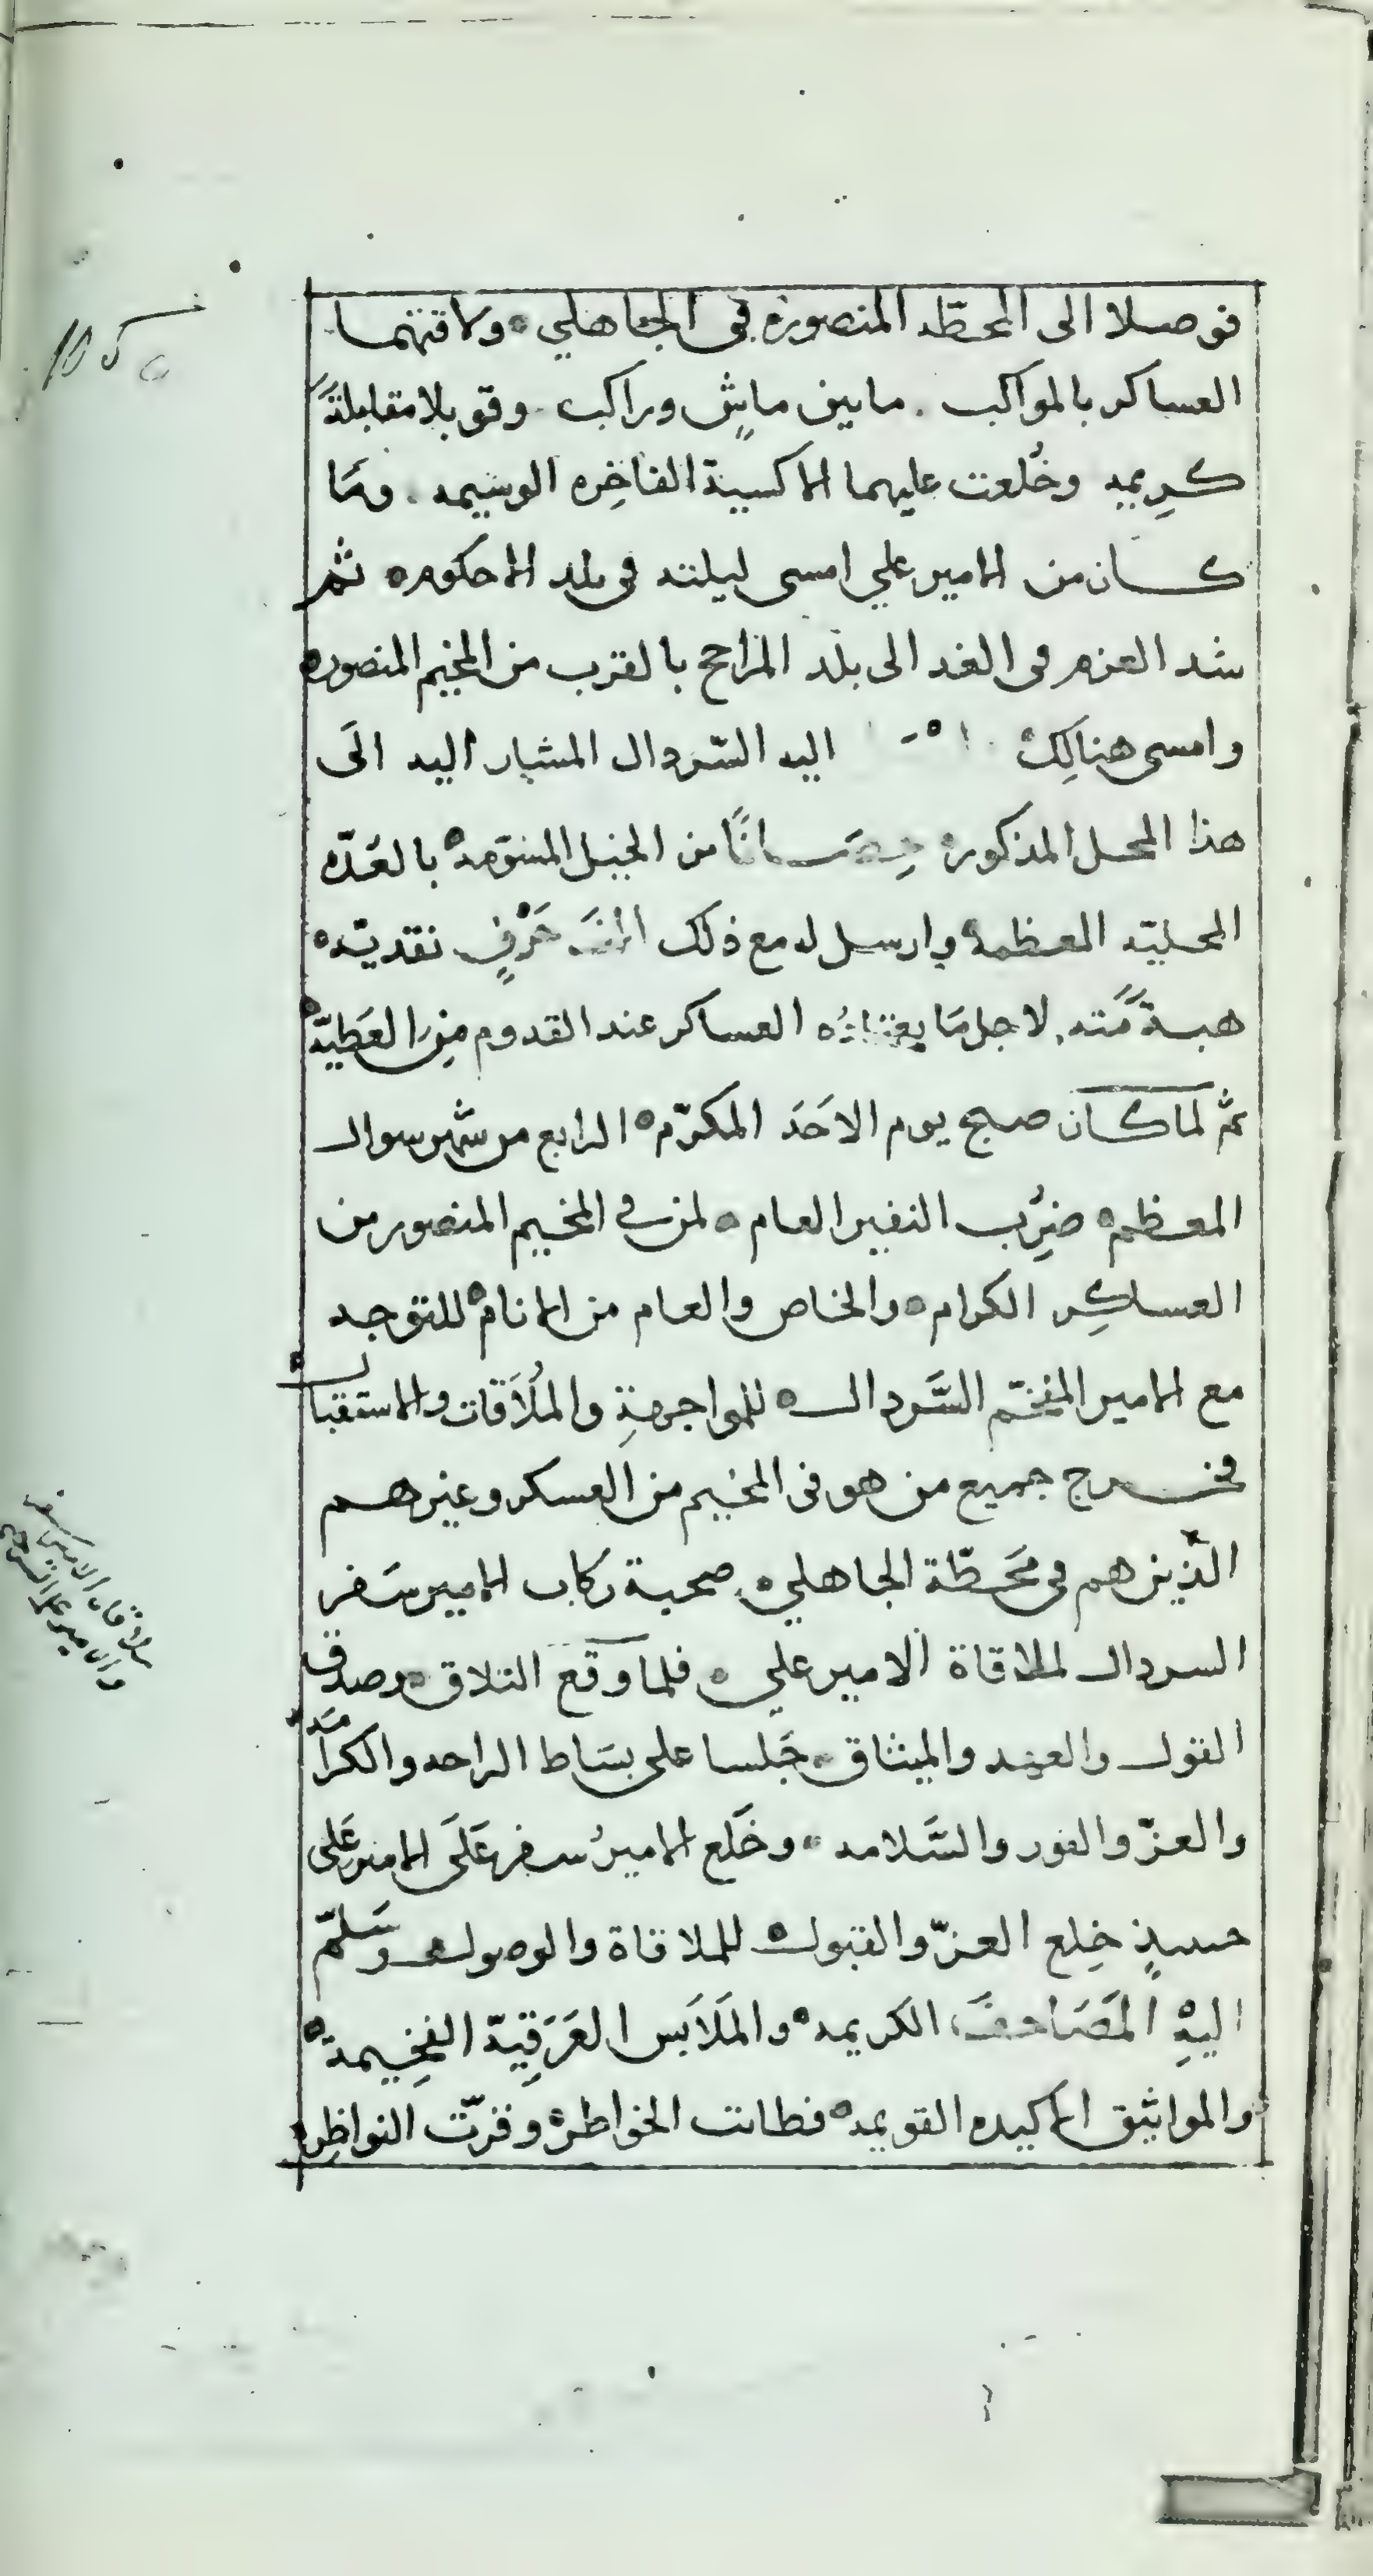 فوصلا الى المحطّه المنصوره في الجاهلي ولاقتهما
العساكر بالمواكب . مابين ماشٍ وراكب . وقوبلا مقابلةً
كريمه وخُلعت عليهما الاكسية الفاخِره الوسيمه . ومَا
كان من الامير علي امسى ليلته في بلد الاحكوم ثم
شد العزم في الغد الى بلد المزاحج بالقرب من المخيم المنصوره
وامسى هنالِك اليه السّردال المشار اليه الَى
هذا المحل المذكوره حِصَانًا من الخيل المسوّمه بالعُدّه
المحليّه المعظمه وارسل له مع ذلك الف حَرْفٍ نقديّه
هبةً مَنّه . لاجل مَا يعتاده العساكر عند القدوم مِن العَطيّة
ثم لما كان صبح يوم الاحَد المكرّم الرابع من شهر سوال
المعظم ضرِب النفير العام لمن في المخيم المنصور من
العساكِر الكرام والخاص والعام من الانام للتوجه
مع الامير المفخّم السَّردال للمواجهةِ والمُلَاقات والاستقبال
فخرج جميع من هو في المخيم من العسكر وغيرهم
الّذين هم في مَحَطّة الجاهلي صحبة ركاب الامير سَفر
السردال لملاقاة الامير علي فلما وقع التلاق وصدق
القول والعهد والميثاق جَلسا على بسَاط الراحه والكرامَه
والعزّ والفوز والسَّلامه وخَلع الاميرُ سفر عَلَى الامير عَلي
حسيذٍ خِلع العزّ والقبول للملاقاة والوصول وسَلّم
اليهِ المَصَاحفَ الكريمه والمَلَابس العَرَقِيّة الفخِيمة
والمواثيق الاكيده القويمه فطابت الخواطر وقرّت النواظِر
ملاقات الامير سفر
والامير علي الشرجي